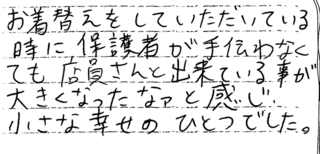 お着替えをしていただいている
時に保護者が手伝わなく
ても店員さんと出来ている事が
大きくなったなァと感じ
小さな幸せのひとつでした。